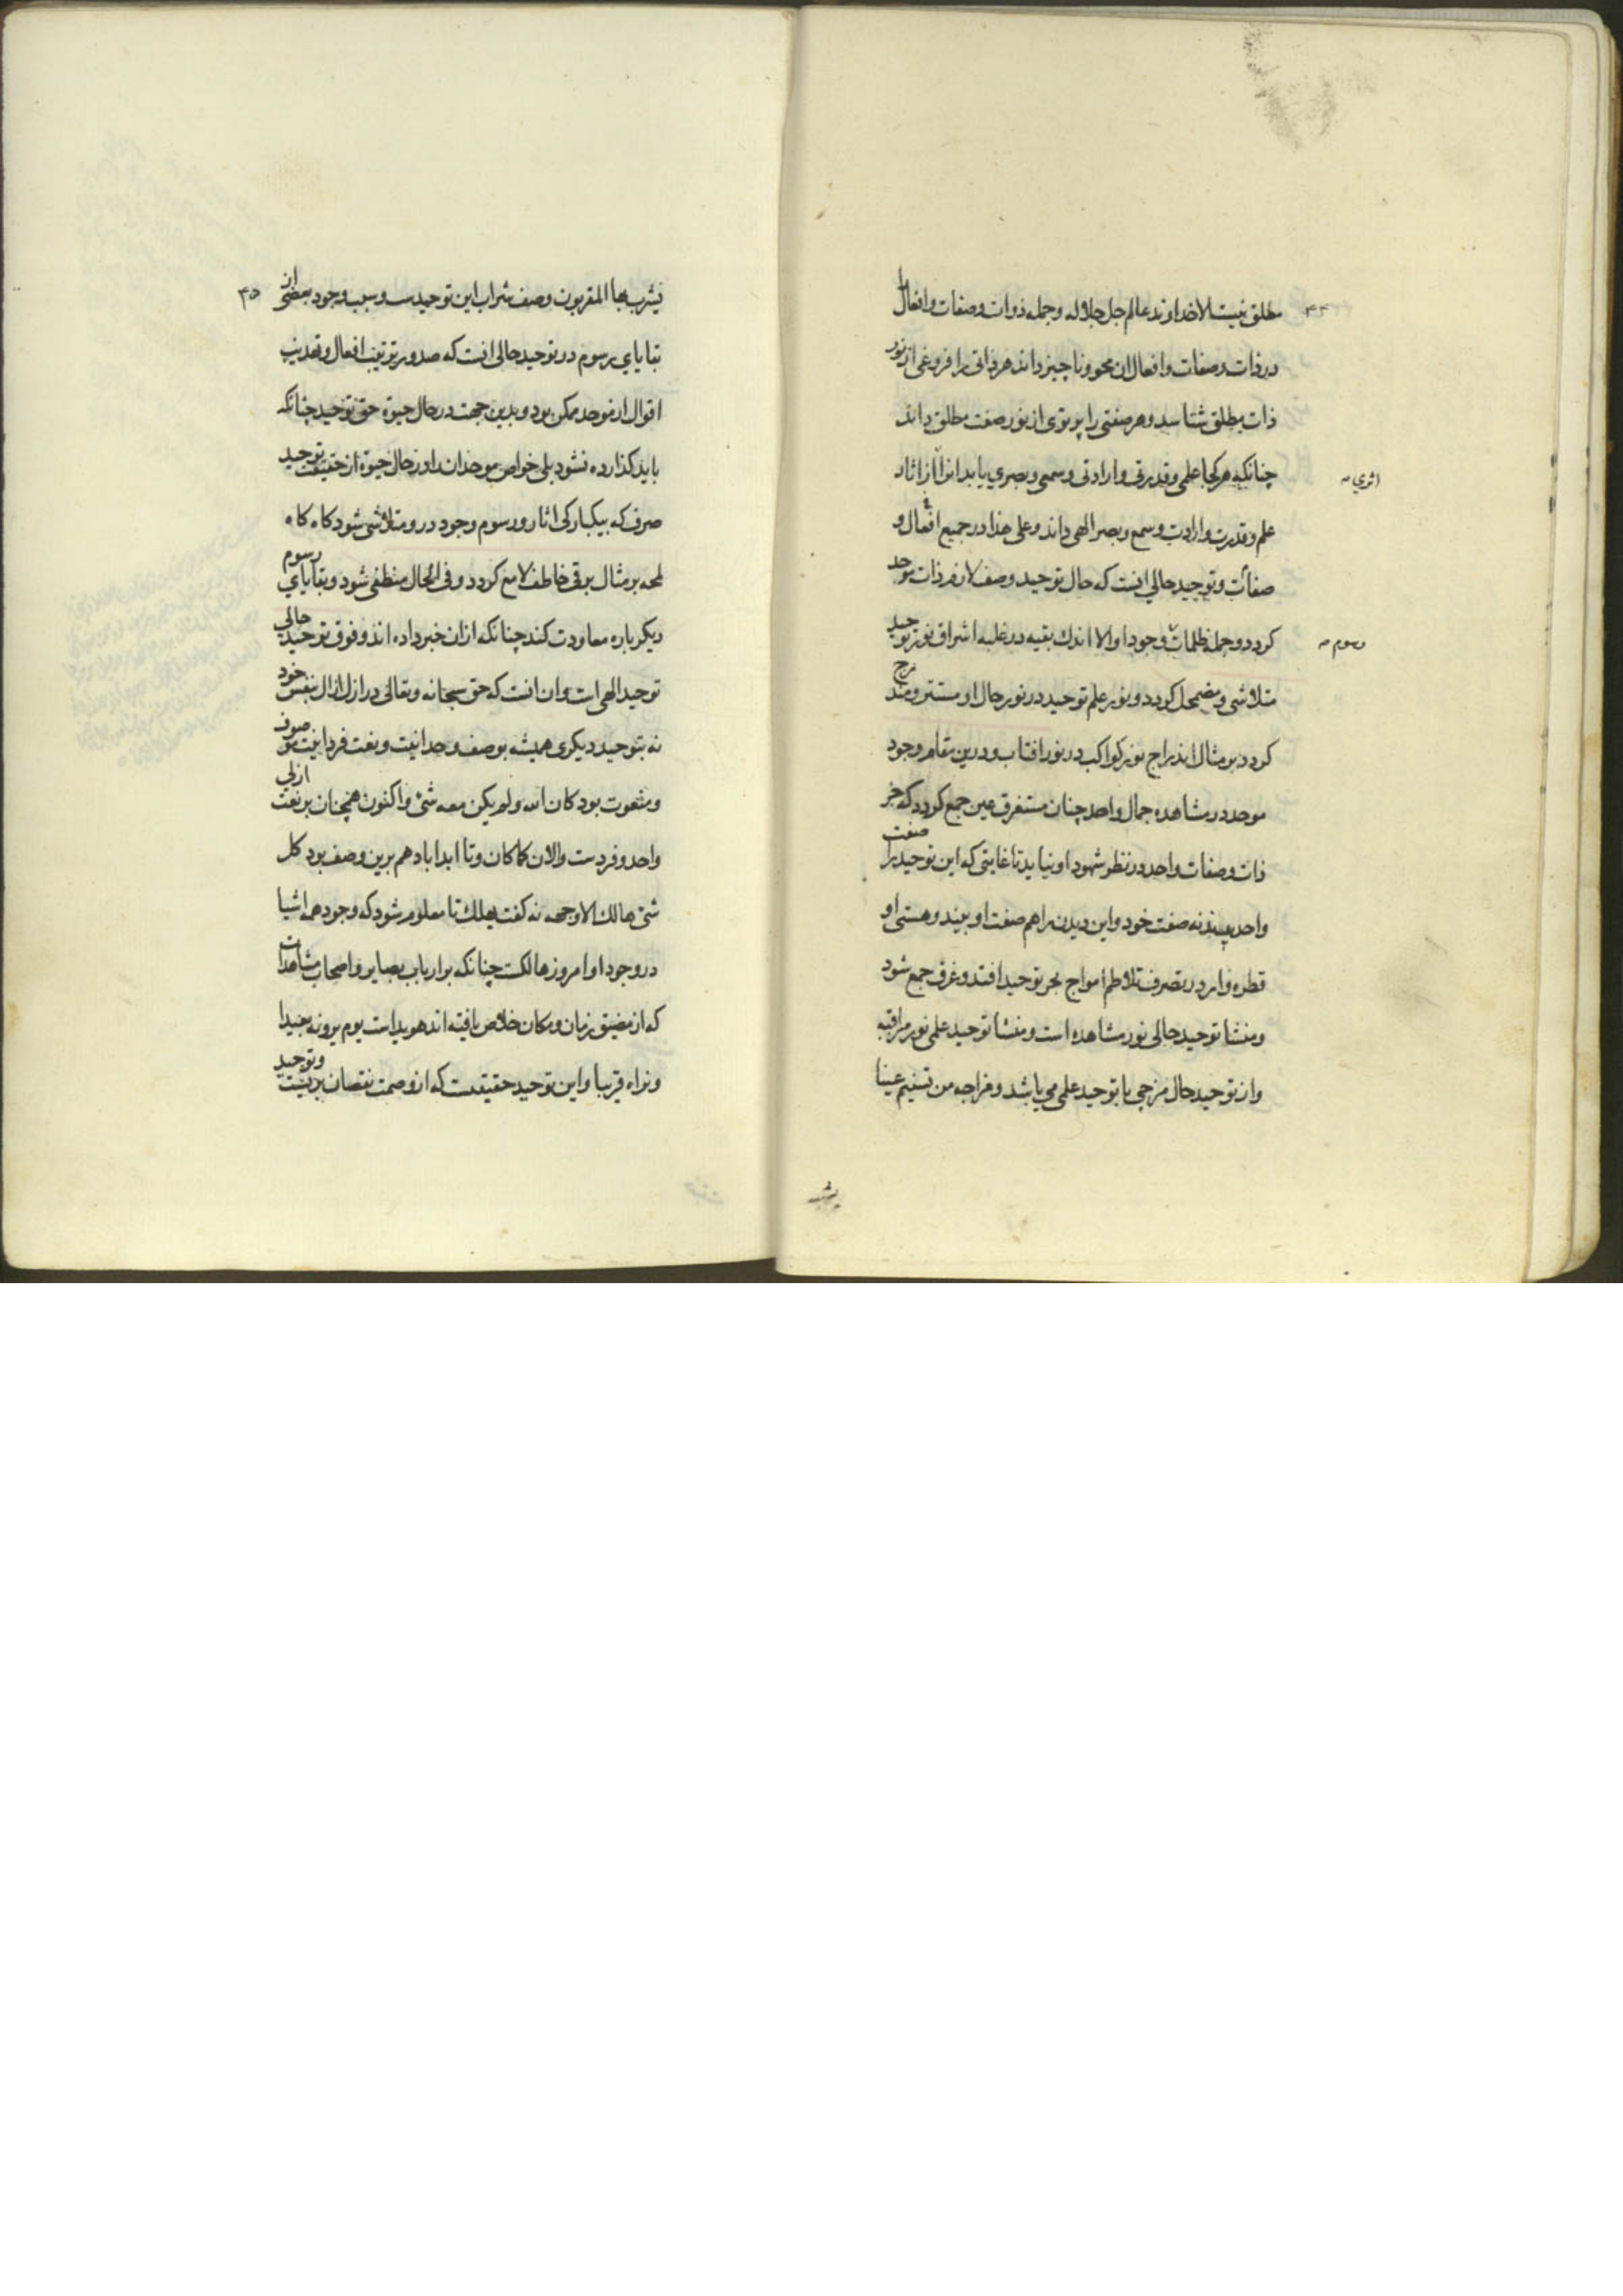 ۴۴
مطلق نیست الا خداوند عالم جل جلاله و جمله ذوات و صفات و افعال را
در ذات و صفات و افعال ان محو و ناچیز داند هر ذاتی را فروغی از نور
ذات مطلق شناسد و هر صفتی را پرتوی از نور صفت مطلق داند
چنانکه هر کجا علمی و قدرتی و ارادتی و سمعی و بصری یابد انرا از اثار
اثری
علم و قدرت و ارادت و سمع و بصر الهی داند و علی هذا در جمیع افعال و
صفات و توحید حالی انست که حال توحید وصف لازم ذات موحد
کردد و جمله ظلمات وجود او الا اندك بقیه در غلبه اشراق نور توحید
رسوم
متلاشی و مضمحل کردد و نور علم توحید در نور حال او مستتر و مندرج
کردد بر مثال اندراج نور کواکب در نور افتاب و درین مقام وجود
موحد در مشاهده جمال واحد چنان مستغرق عین جمع کردد که جز
ذات و صفات واحد در نظر شهود او نیاید تا غایتی که این توحید را صفت
واحد بیند نه صفت خود و این دیدن را هم صفت او بیند و هستی او
قطره وار در تصرف تلاطم امواج بحر توحید افتد و غرق جمع شود
و منشا توحید حالی نور مشاهده است و منشا توحید علمی نور مراقبه
و از توحید حال مزجی با توحید علمی می باشد و مزاجه من تسنیم عینا
یشرب
۴۵
یشرب بها المقربون وصف شراب این توحیدست و سبب وجود بعضی از
بقایای رسوم در توحید حالی انست که صدور ترتیب افعال و تهذیب
اقوال از موحد ممکن بود و بدین جهت در حال حیوة حق توحید چنانکه
باید کذارده نشود بلی خواص موحدانرا در حال حیوة از حقیقت توحید
صرف که بیکبارکی اثار و رسوم وجود درو متلاشی شود کاه کاه
لمحه بر مثال برقی خاطف لامع کردد و فی الحال منطفی شود و بقایای رسوم
دیکر باره معاودت کند چنانکه ازان خبر داده اند و فوق توحید حالی
توحید الهی است و ان انست که حق سبحانه و تعالی در ازل ازال بنفس خود
نه بتوحید دیکری همیشه بوصف وحدانیت و نعت فردانیت موصوف
و منعوت بود کان الله و لم یکن معه شئ و اکنون همچنان بر نعت ازلی
واحد و فردست والان کما کان و تا ابد اباد هم برین وصف بود کل
شئ هالك الا وجهه نه کفت یهلك تا معلوم شود که وجود همه اشیا
در وجود او امروز هالکست چنانکه بر ارباب بصایر و اصحاب مشاهدات
که از مضیق زمان و مکان خلاص یافته اند هویداست یوم یرونه بعیدا
و نراه قریبا و این توحید حقیقیست که از وصمت نقصان بریست و توحید